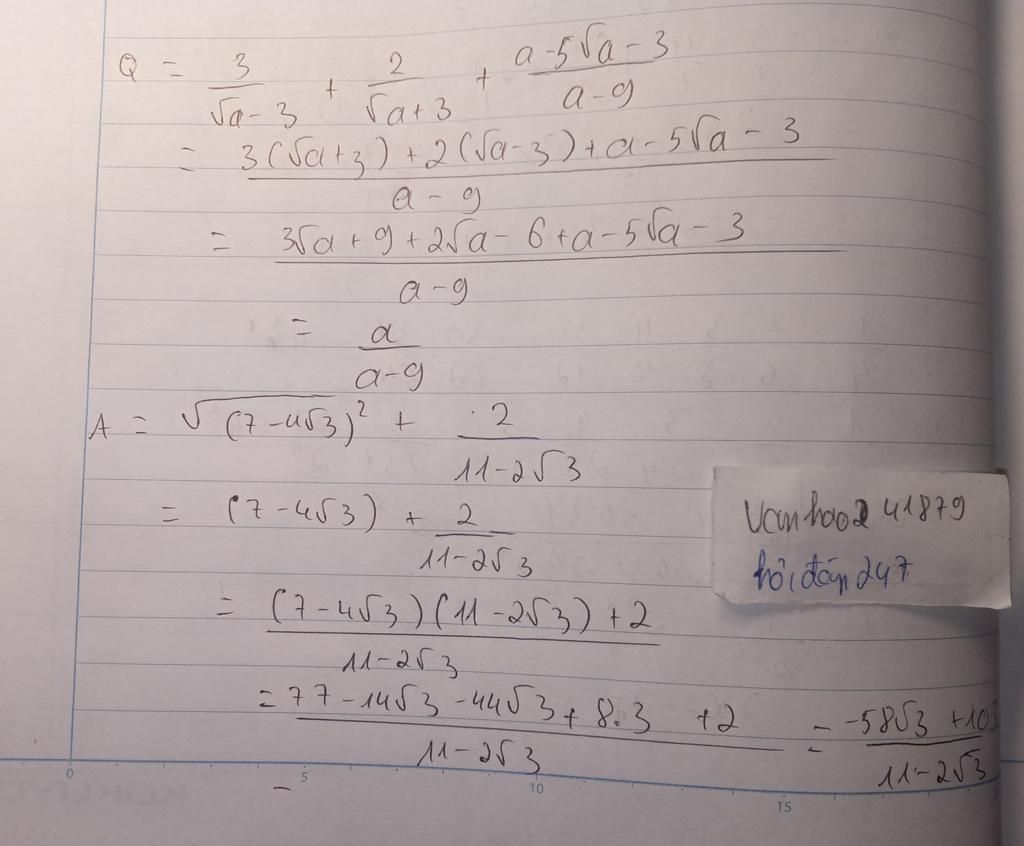 Q = 3/(√a - 3) + 2/(√a + 3) + (a - 5√a - 3)/(a - 9)
= (3(√a + 3) + 2(√a - 3) + a - 5√a - 3)/(a - 9)
= (3√a + 9 + 2√a - 6 + a - 5√a - 3)/(a - 9)
= a/(a - 9)
A = √(7 - 4√3)² + 2/(11 - 2√3)
= (7 - 4√3) + 2/(11 - 2√3)
= ((7 - 4√3)(11 - 2√3) + 2)/(11 - 2√3)
= (77 - 14√3 - 44√3 + 8.3 + 2)/(11 - 2√3) = (-58√3 + 103)/(11 - 2√3)
vanhao241879
hỏi đáp 247
0 5 10 15